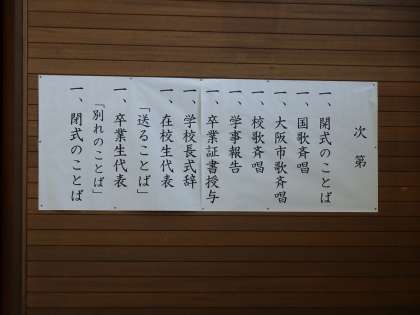 次第
一、開式のことば
一、国歌斉唱
一、大阪市歌斉唱
一、校歌斉唱
一、学事報告
一、卒業証書授与
一、学校長式辞
一、在校生代表
「送ることば」
一、卒業生代表
「別れのことば」
一、閉式のことば